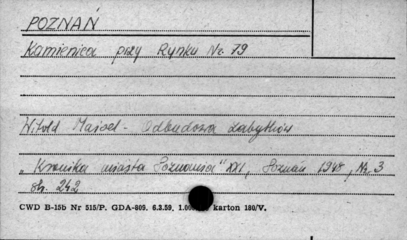 POZNAŃ
Kamienica przy Rynku Nr. 79
Witold Maisel - Odbudowa zabytków
"Kronika miasta Poznania" XXI, Poznań 1948, Nr. 3
str. 242
CWD B-15b Nr 515/P. GDA-805. 6.3.59. karton 180/V.